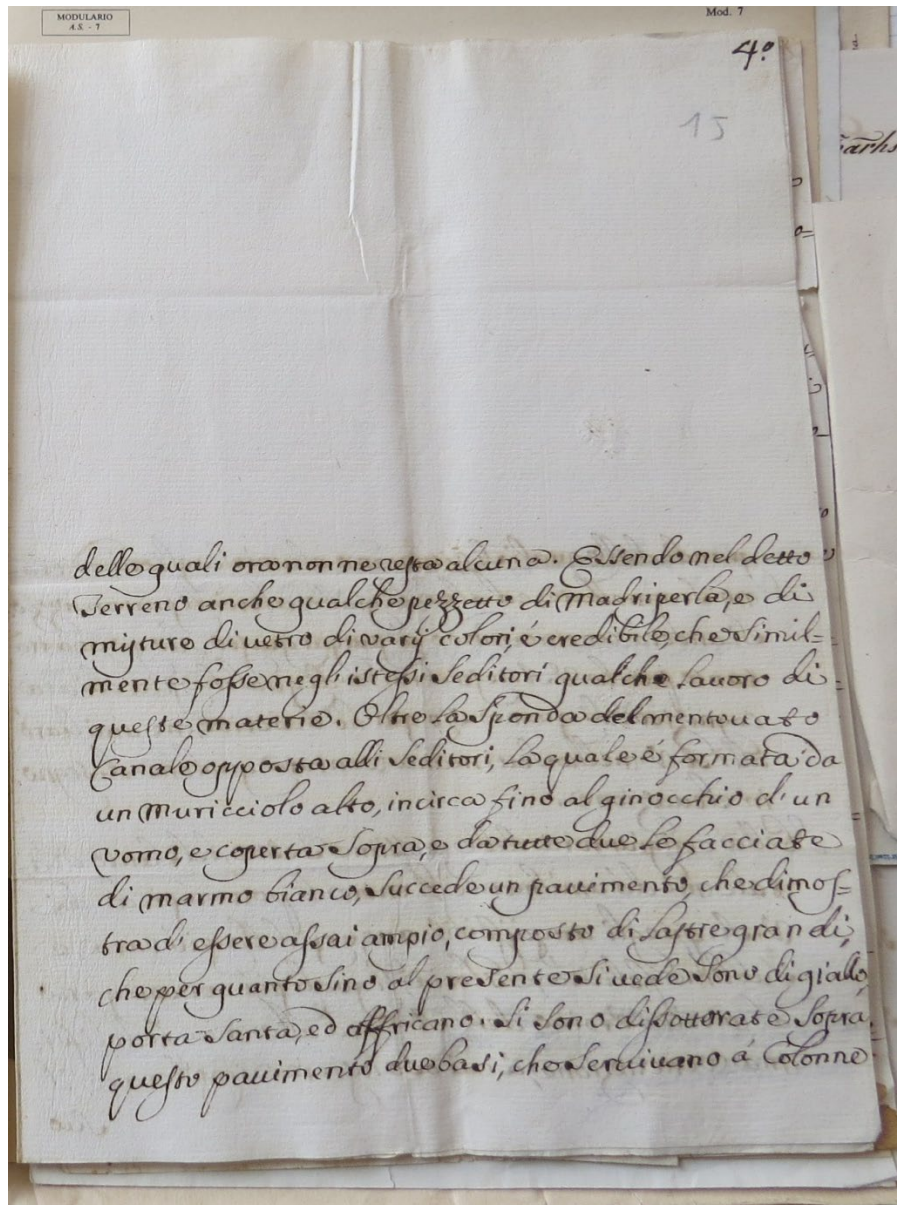 MODULARIO
A.S. - 7
Mod. 7
4.º
15
delle quali ora non ne resta alcuna. Essendo nel detto
Terreno anche qualche pezzetto di Madriperla, e di
misture di vetro di varij colori, é credibile, che simil=
mente fosse negli istessi Seditori qualche Lavoro di
queste materie. Oltre la Sponda del mentovato
Canale opposta alli Seditori, la quale é formata da
un Muricciolo alto, incirca fino al ginocchio d'un
vomo, e coperta sopra, e da tutte due le facciate
di marmo bianco, succede un pavimento, che dimos=
tra d'essere assai ampio, composto di Lastre grandi,
che per quanto sino al presente si vede sono di giallo,
porta Santa, ed affricano. Si sono dissotterate sopra
questo pavimento due basi, che servivano á Colonne